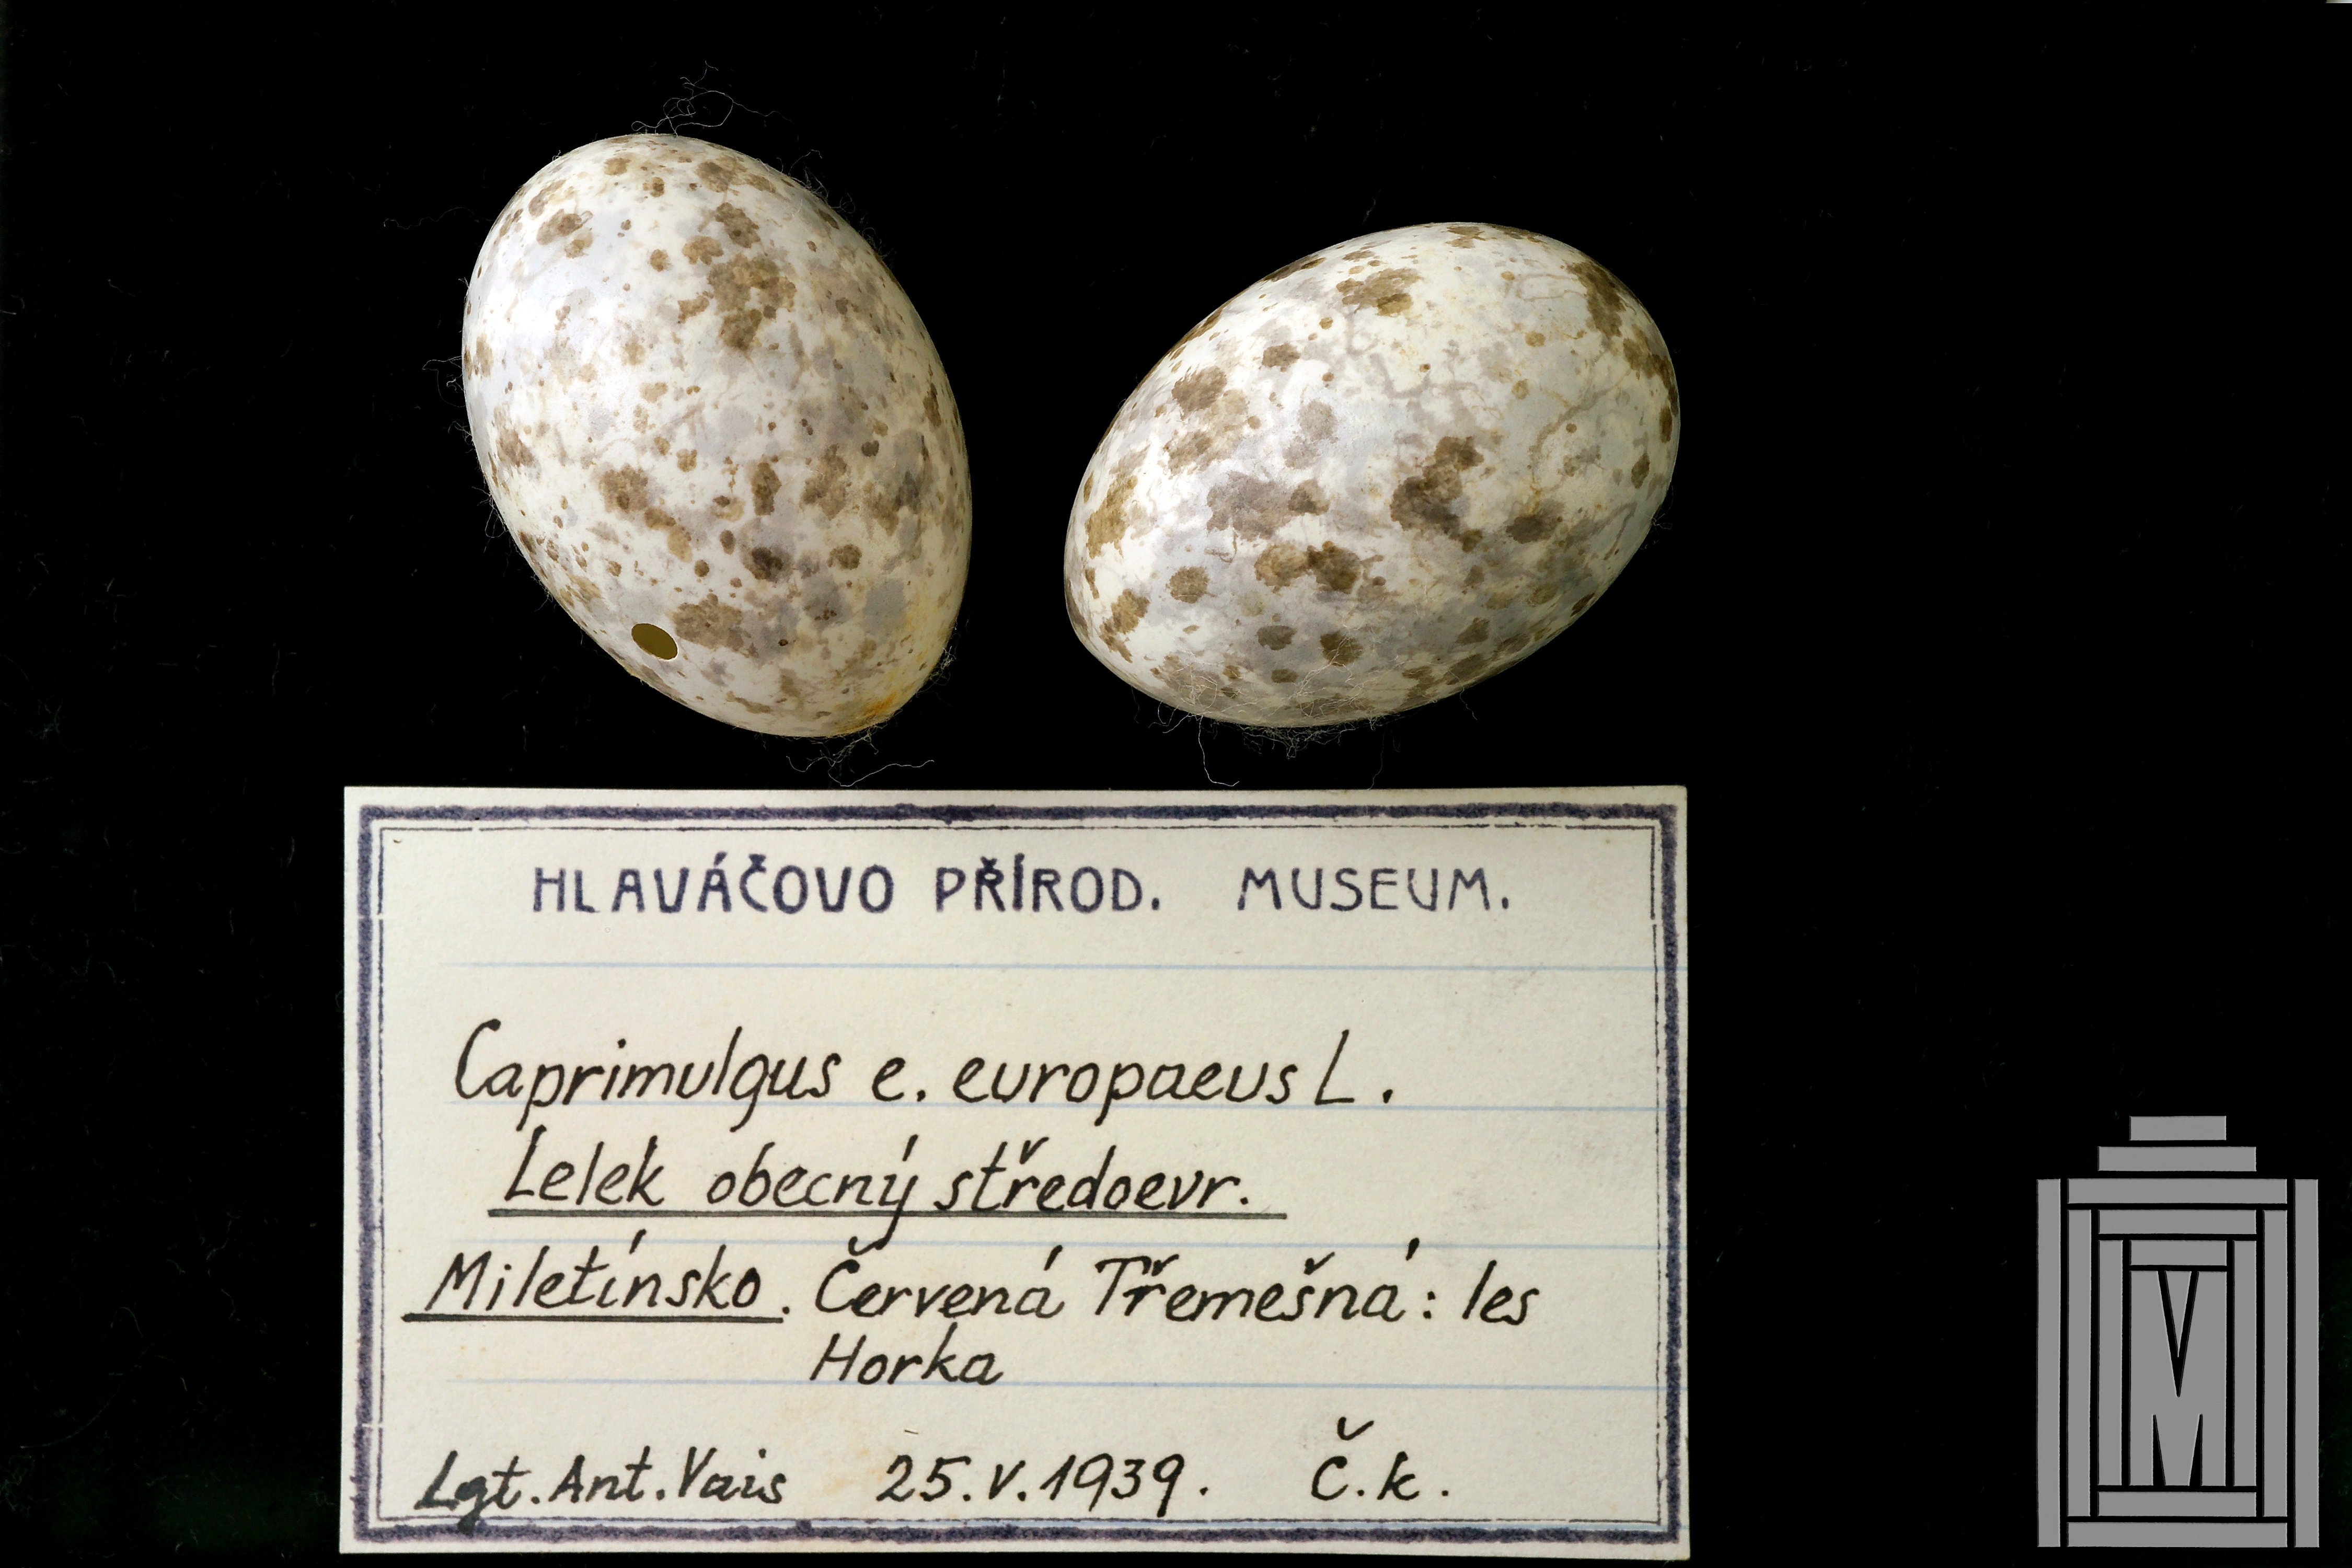 HLAVÁČOVO PŘÍROD. MUSEUM.
Caprimulgus e. europaeus L.
Lelek obecný středoevr.
Miletínsko. Červená Třemešná: les
Horka
Lgt. Ant. Vais 25.V.1939. Č.k.
VM